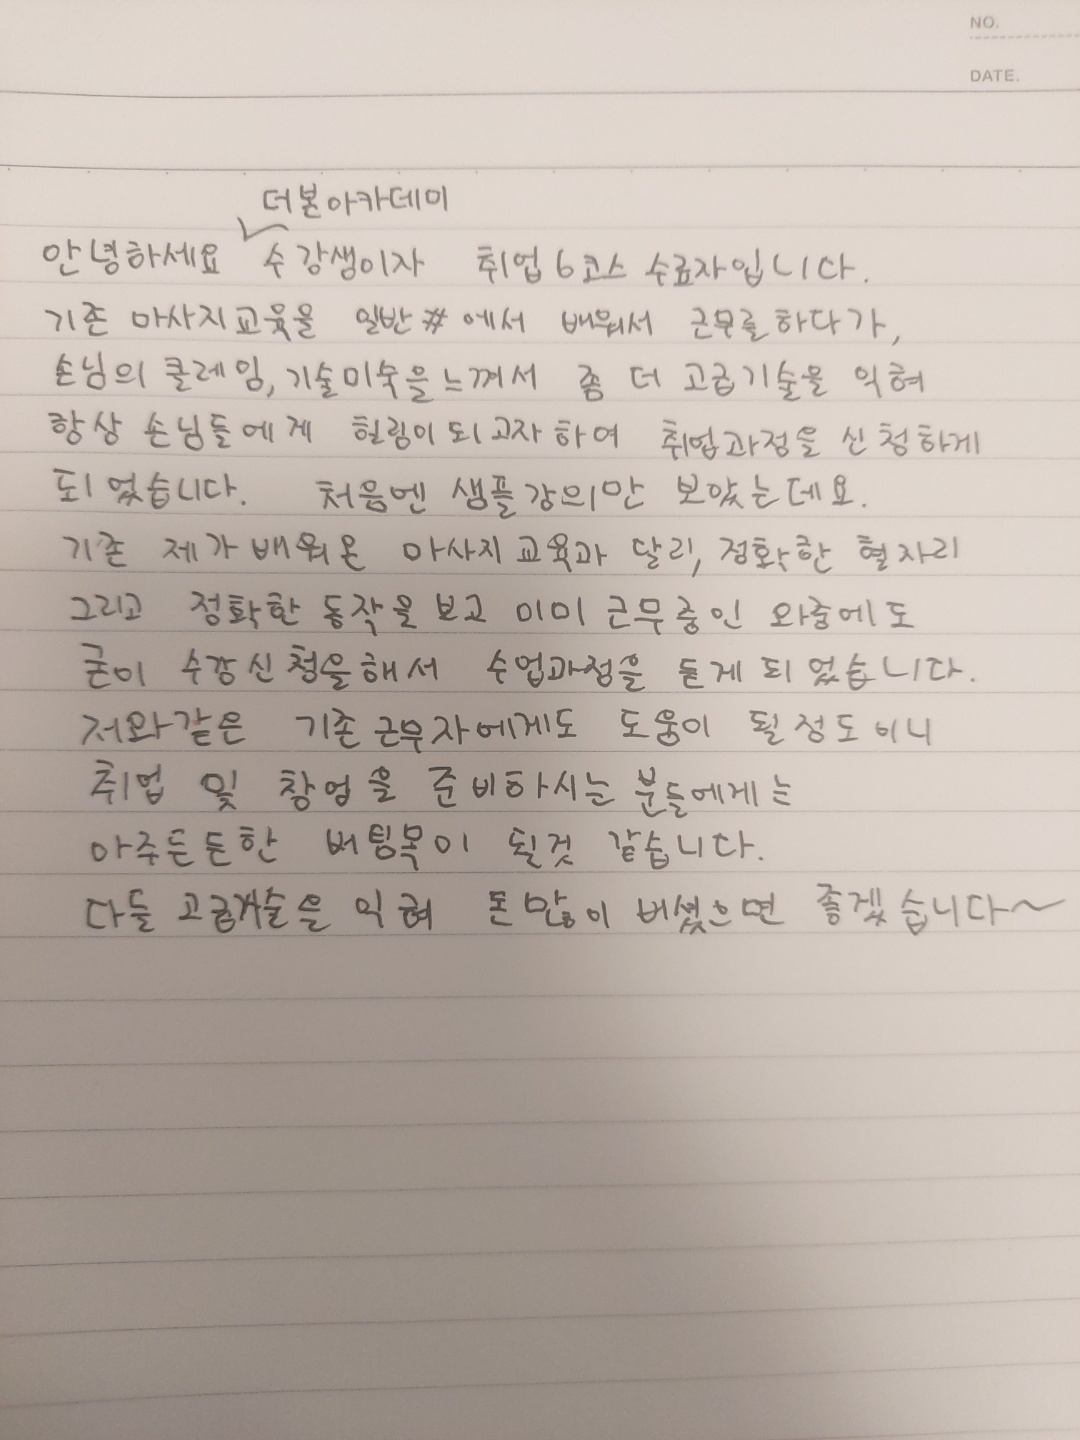 NO.
DATE.
더본아카데미
안녕하세요 수강생이자 취업 6코스 수료자입니다.
기존 마사지교육을 일반 #에서 배워서 근무를 하다가,
손님의 클레임, 기술미숙을 느껴서 좀 더 고급기술을 익혀
항상 손님들에게 힐링이 되고자 하여 취업과정을 신청하게
되었습니다. 처음엔 샘플강의만 보았는데요.
기존 제가 배워온 마사지 교육과 달리, 정확한 혈자리
그리고 정확한 동작을 보고 이미 근무중인 와중에도
굳이 수강신청을해서 수업과정을 듣게 되었습니다.
저와같은 기존 근무자에게도 도움이 될정도이니
취업 및 창업을 준비하시는 분들에게는
아주든든한 버팀목이 될것 같습니다.
다들 고급기술을 익혀 돈 많이 버셨으면 좋겠습니다~